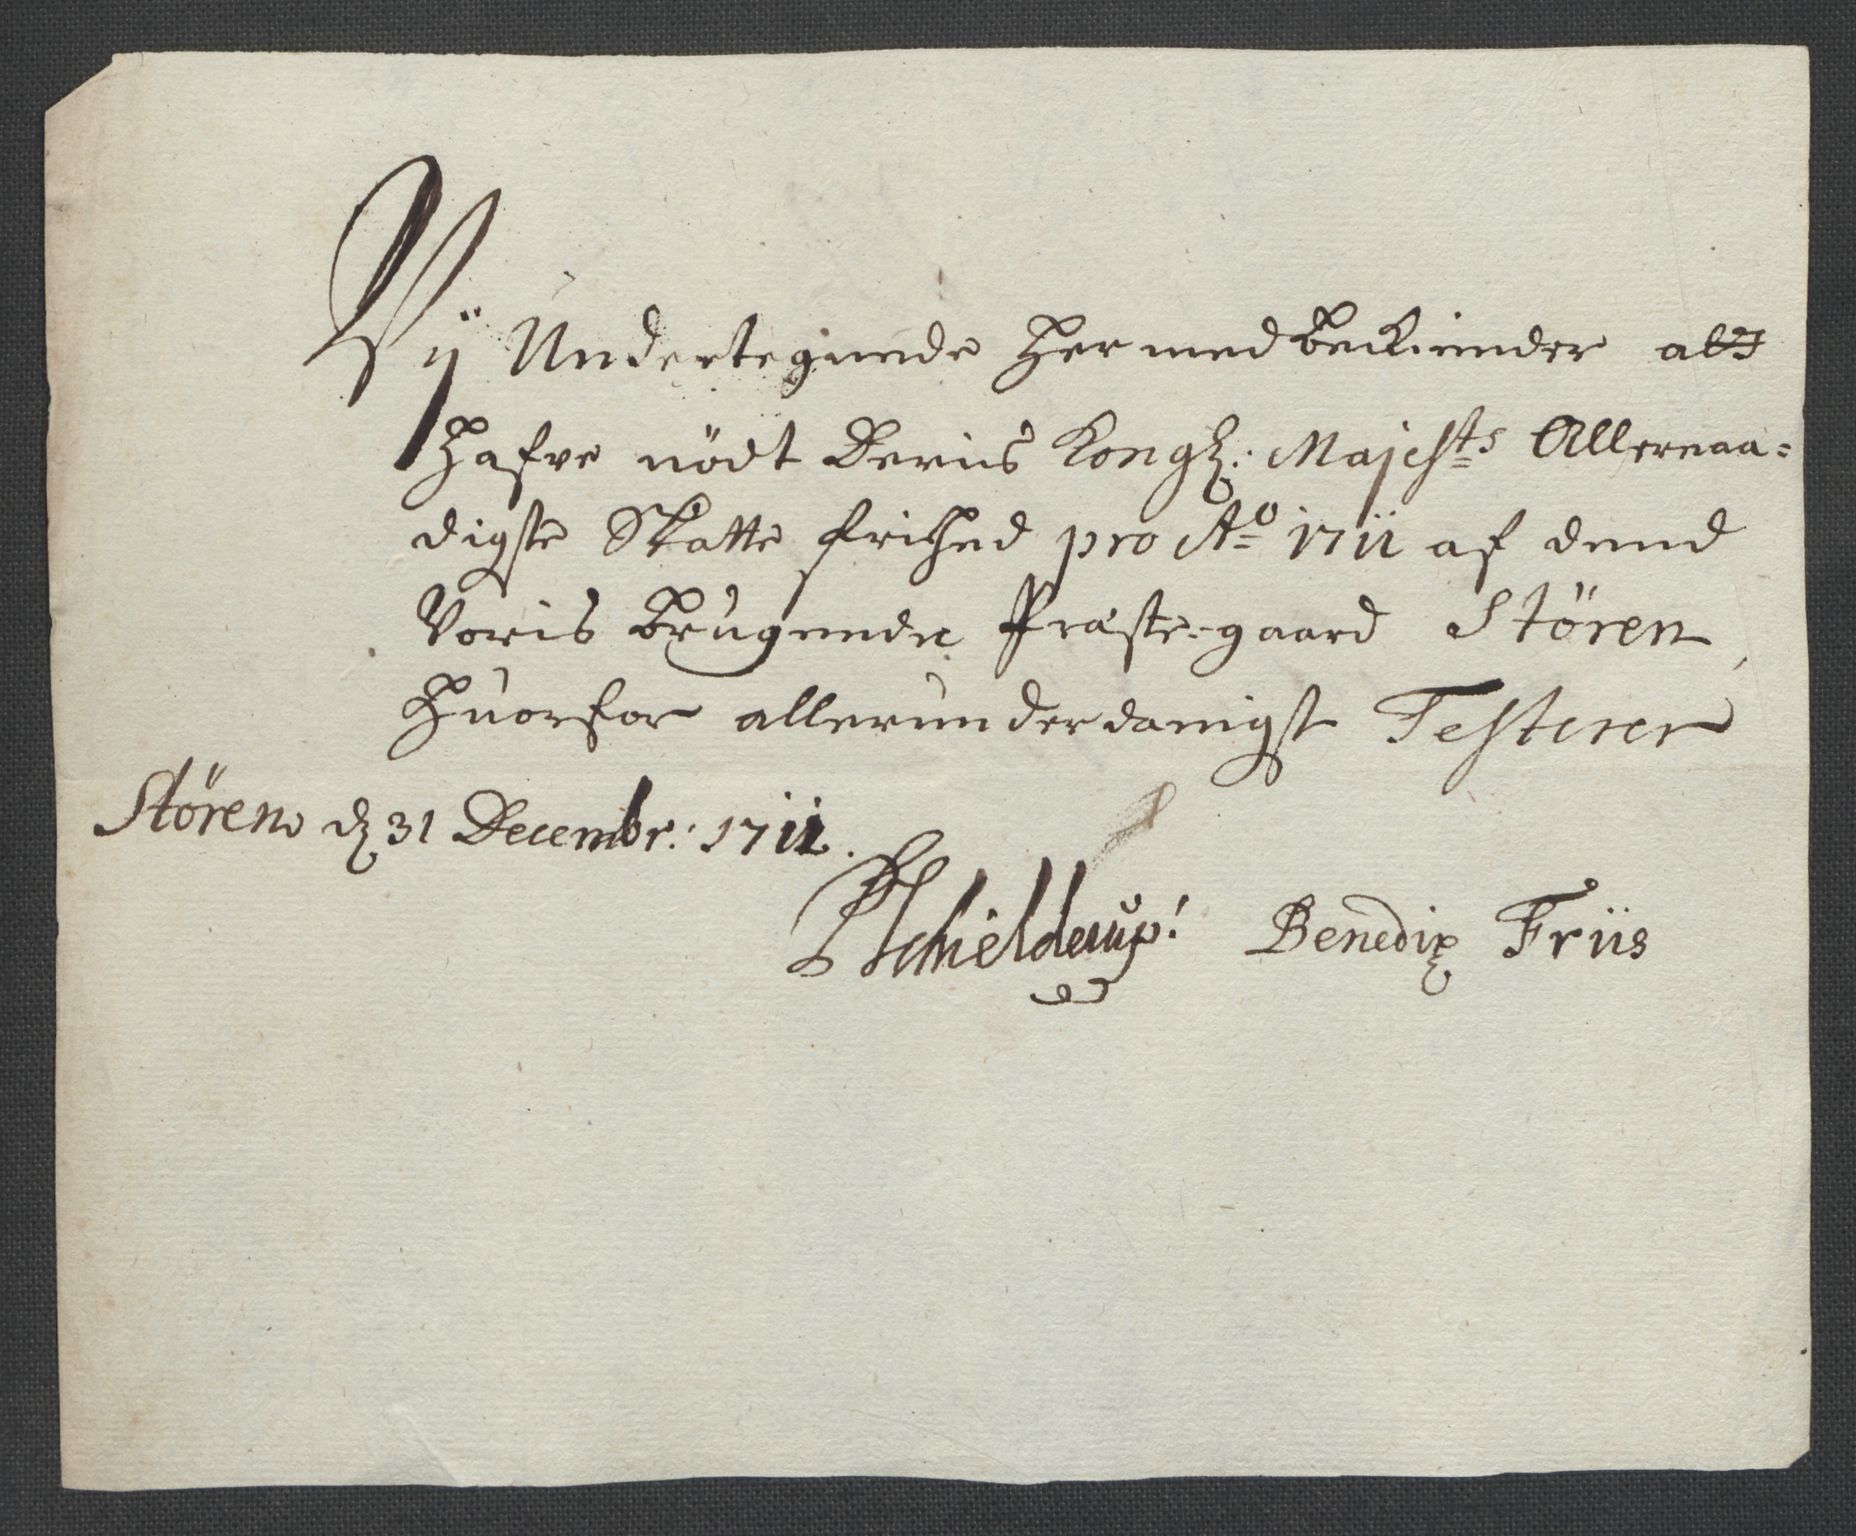 Wÿ Undertegnede Hermed beKiender att
Hafve nödt Deris Kongl: Majests Allernaa=
digste Skatte frihed pro Ao 1711 af dend
Voris brugende Præste-gaard Stören,
Huorfor allerunderdanigst Testerer
Stören d 31 Decembr: 1711.
PSchielderup! Benedix Friis